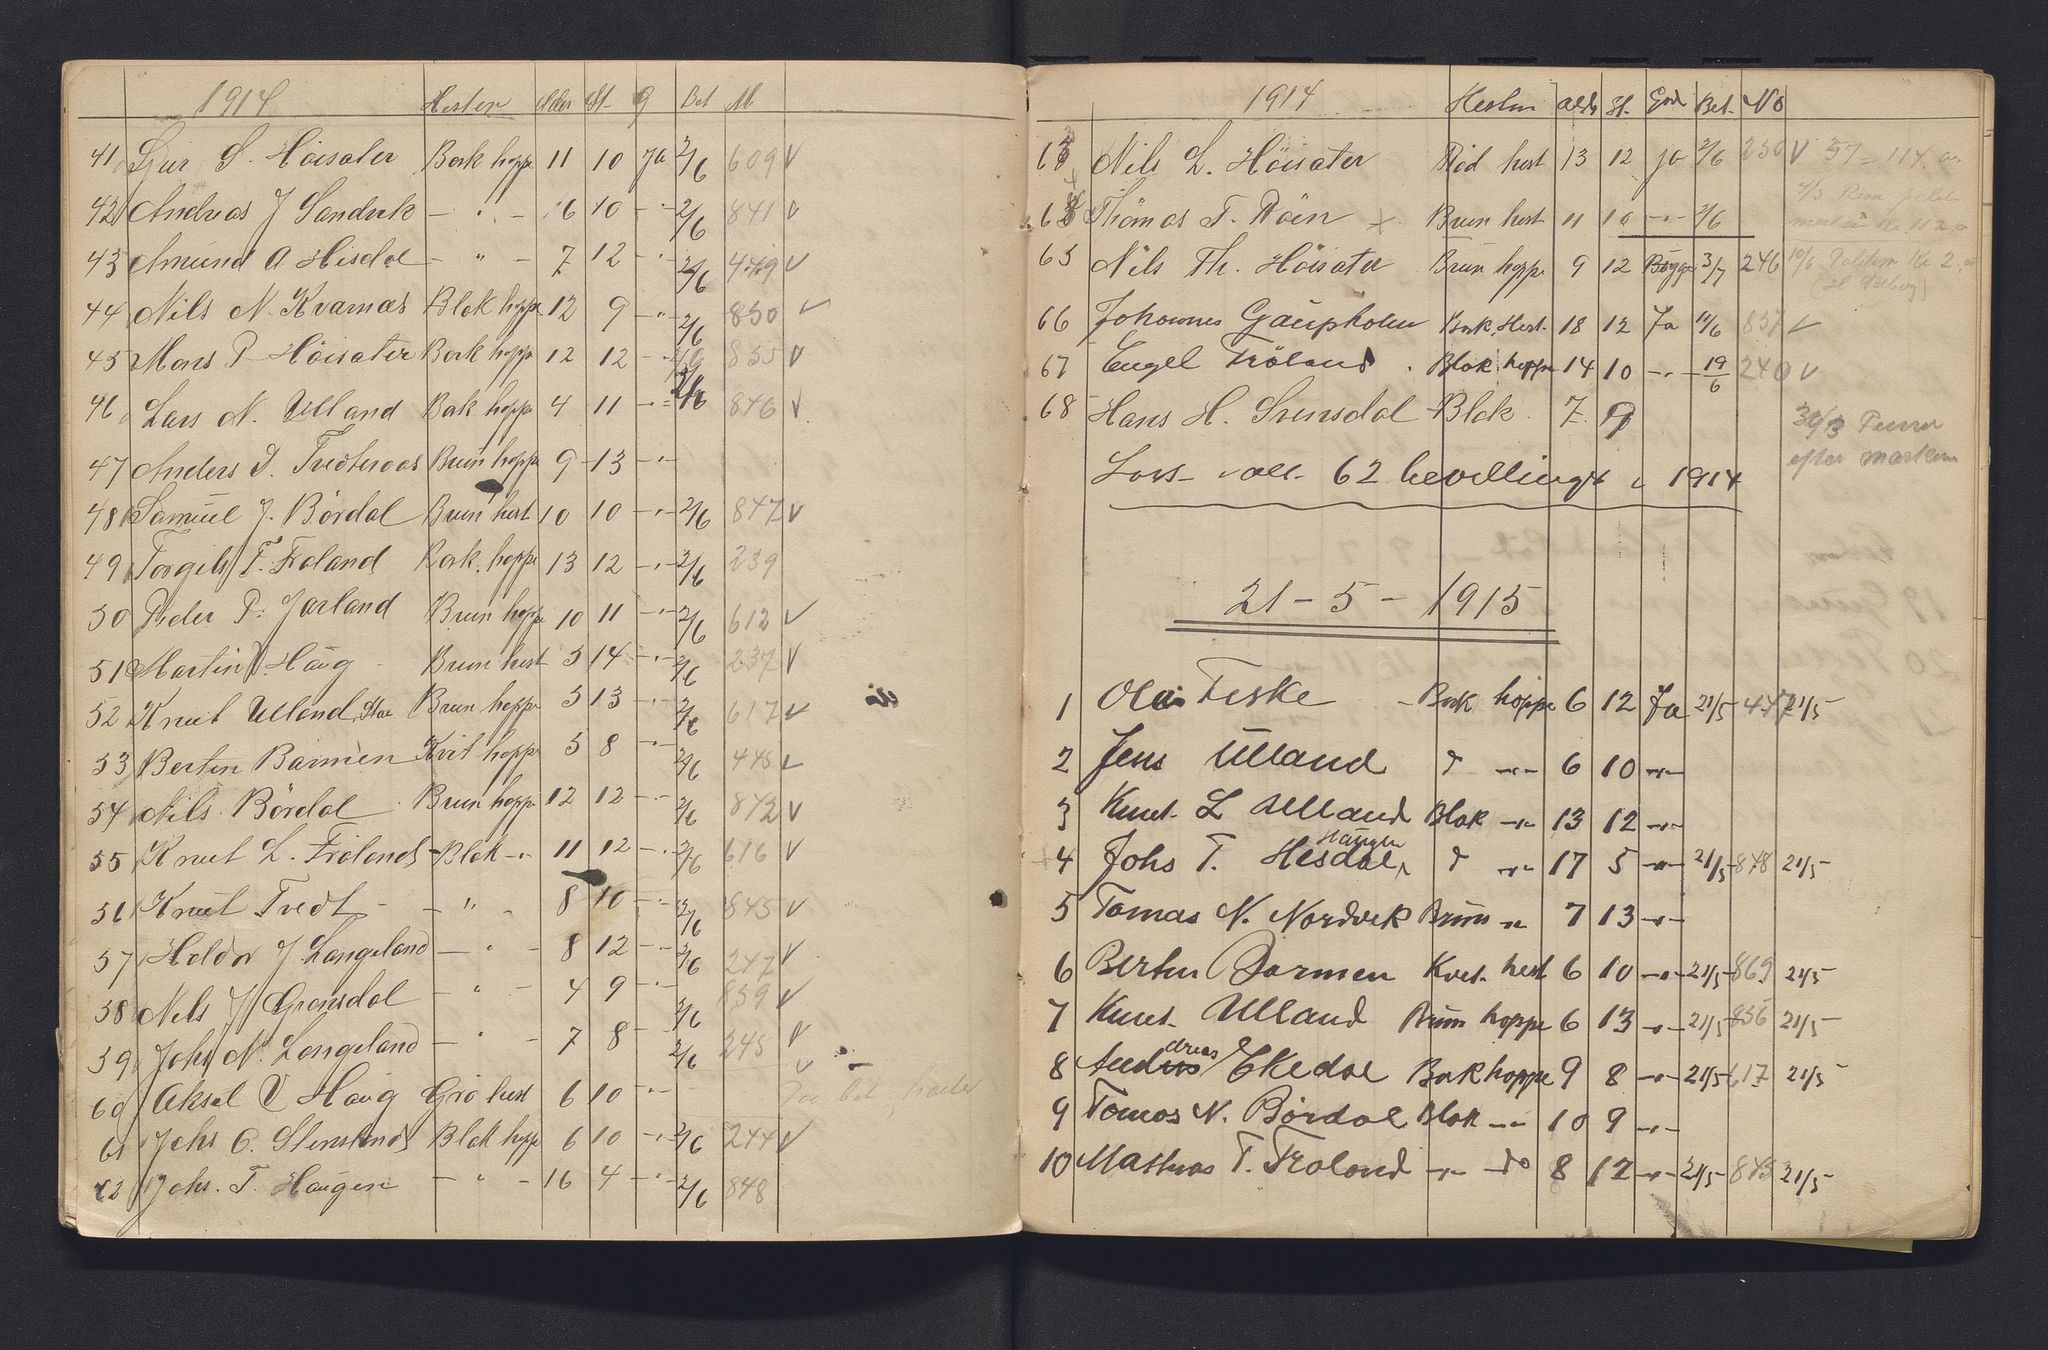 1914 Hesten Alder St. G Bet M
41 Sjur S. Höisæter Bork hoppe 11 10 Ja 2/6 609 √
42 Andreas J Sandvik — " — 16 10 -"- 2/6 841 √
43 Amund A. Hisdal — " — 7 12 -"- 2/6 449 √
44 Nils N. Kvarnæs Blak hoppe 12 9 -"- 2/6 850 √
45 Mons P Höisæter Bork hoppe 12 12 -"- 2/6 855 √
46 Lars N. Ulland Bork hoppe 4 11 -"- 2/6 846 √
47 Anders I. Tredteraas Brun hoppe 9 13 -"-
48 Samuel J. Bördal Brun hest 10 10 -"- 2/6 847 √
49 Torgils T. Froland Bork hoppe 13 12 -"- 2/6 239
50 Peder P. Jarland Brun hoppe 10 11 -"- 2/6 612 √
51 Martin Haug Brun hest 5 14 -"- 2/6 237 √
52 Knut Ulland Brun hoppe 5 13 -"- 2/6 617 √
53 Bertin Barmen Kvit hoppe 5 8 -"- 2/6 445 √
54 Nils Bördal Brun hoppe 12 12 -"- 2/6 842 √
55 Knut L. Fröland Blak -"- 11 12 -"- 2/6 616 √
56 Knut Tvedt — " — 8 10 -"- 2/6 845 √
57 Haldor J Langeland — " — 8 12 -"- 2/6 247 √
58 Nils J Gronsdal — " — 4 9 -"- 2/6 859 √
59 Johs N. Langeland — " — 7 8 - 2/6 245 √
60 Aksel V Haug Grå hest 6 10 -"-
61 Johs O. Stensland Blak hoppe 6 10 -"- 2/6 244 √
62 Johs. T. Haugen — " — 16 4 -"- 2/6 848
1914 Hesten Alder St. God Bet. No
63 Nils L. Höisæter Röd hest 13 12 ja 2/6 250 √ 57 = 114.
64 Thomas T. Röen × Brun hest 11 10 -"- 2/6
65 Nils Th. Höisæter Brun hoppe 9 12 Bygge 3/7 246
66 Johannes Gaupholm Bork. Hest. 18 12 Ja 11/6 857 √
67 Engel Fröland Blak hoppe 14 10 -"- 19/6 240 √
68 Hans H. Svensdal Blak 7
efter
62 bevillinget i 1914
21 - 5 - 1915
1 Ola Teske Bork hoppe 6 12 Ja 21/5 447 21/5
2 Jens Ulland d -"- 6 10 -"-
3 Knut L Ulland Blak -"- 13 12 -"-
Haugen
4 Johs T. Hisdal d -"- 17 5 -"- 21/5 848 21/5
5 Tomas N. Nordvik Brun -"- 7 13 -"-
6 Bertin Barmen Kvit hest 6 10 -"- 21/5 869 21/5
7 Knut Ulland Brun hoppe 6 13 -"- 21/5 856 21/5
8 Andreas Ekedal Bork hoppe 9 8 -"- 21/5 617 21/5
9 Tomas N. Bördal Blak -"- 10 9 -"-
10 Mathias T. Froland -"- do 8 12 -"- 21/5 843 21/5